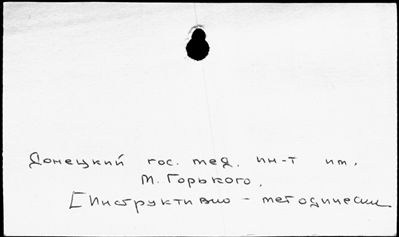 Донецкий гос. мед. ин-т им.
М. Горького.
[Инструктивно - методически